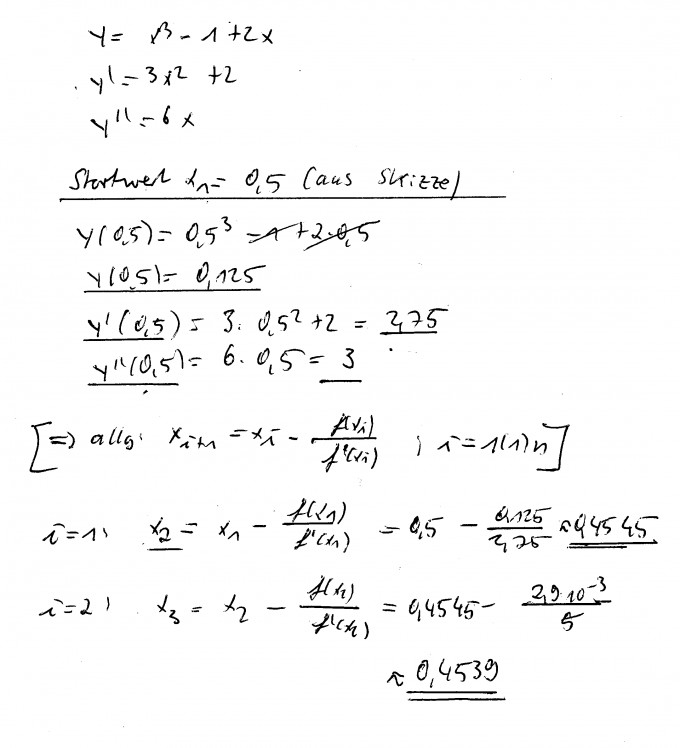 y = x³ - 1 + 2x
y' = 3x² + 2
y'' = 6x
Startwert x₁ = 0,5 (aus Skizze)
y(0,5) = 0,5³ - 1 + 2·0,5
y(0,5) = 0,125
y'(0,5) = 3 · 0,5² + 2 = 2,75
y''(0,5) = 6 · 0,5 = 3
[⇒ allg: xᵢ₊₁ = xᵢ - f(xᵢ)/f'(xᵢ) ; i = 1(1)n]
i=1: x₂ = x₁ - f(x₁)/f'(x₁) = 0,5 - 0,125/2,75 ≈ 0,4545
i=2: x₃ = x₂ - f(x₂)/f'(x₂) = 0,4545 - 2,9·10⁻³/5
≈ 0,4539